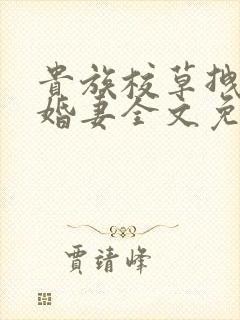 貴族校草拽
婚妻全文免
賈靖峰